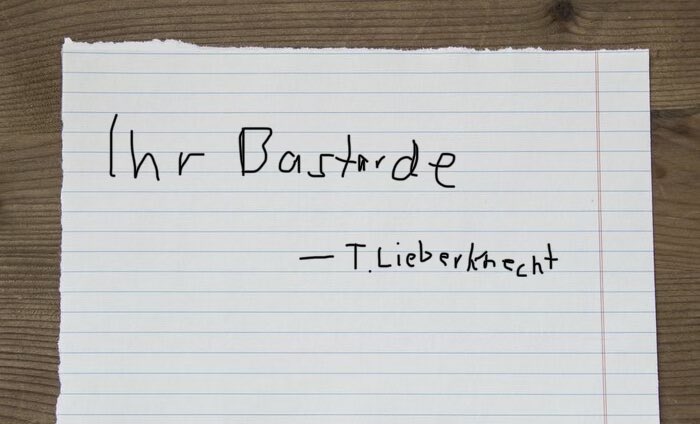 Ihr Bastarde
— T. Lieberknecht